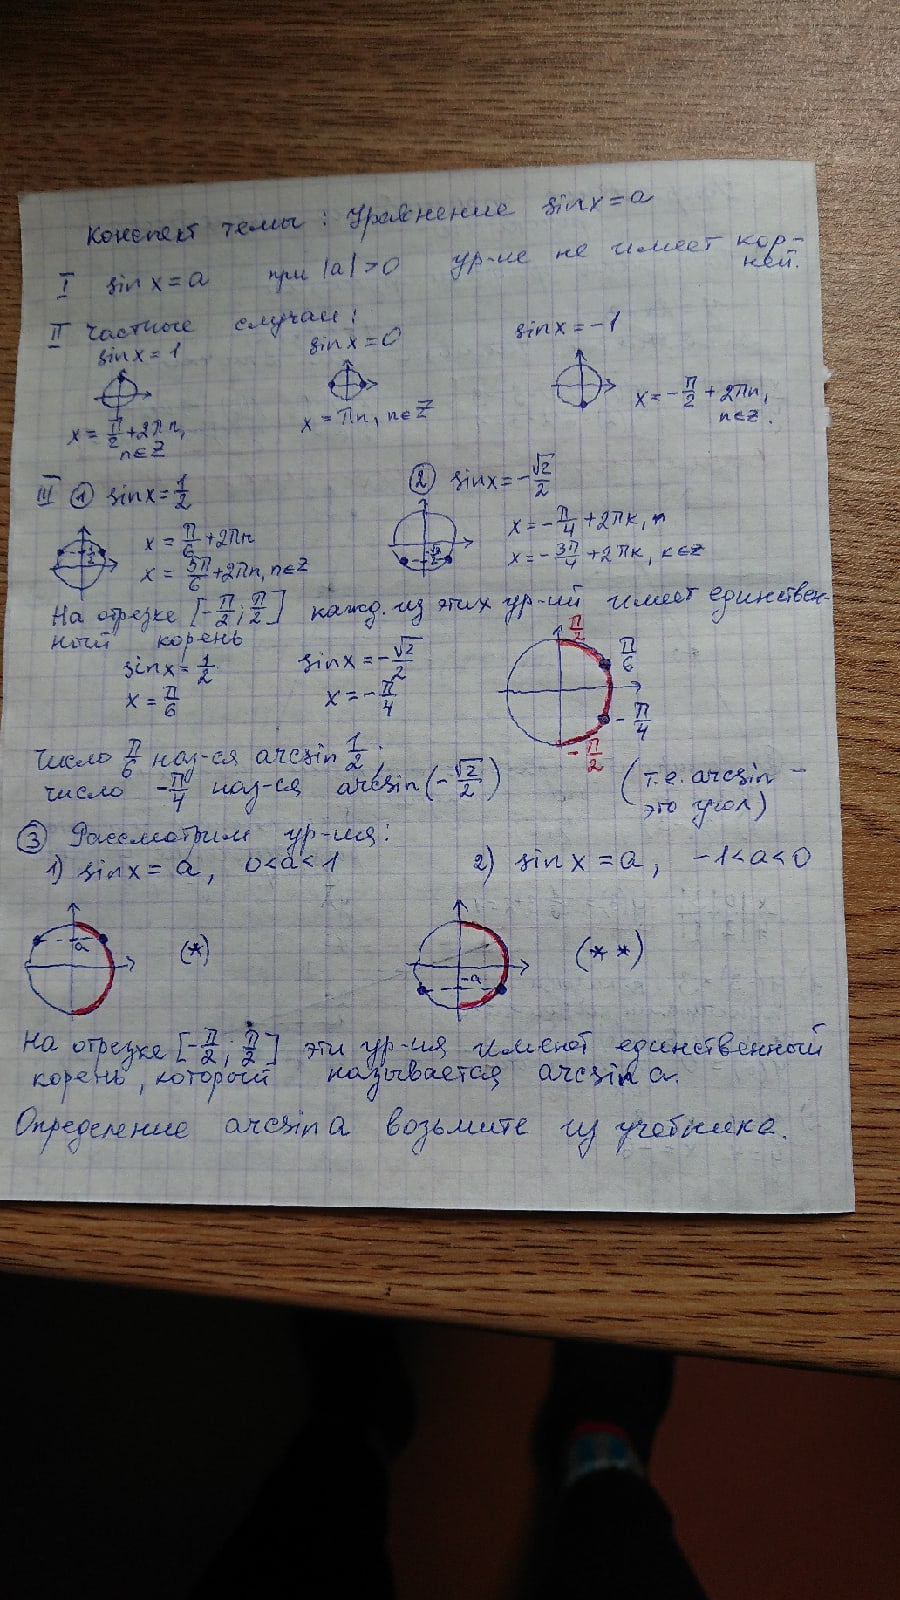 Конспект темы: Уравнение sinx=a
I sinx=a при |a|>0 ур-ие не имеет кор-
ней.
II Частные случаи:
sinx=1 sinx=0 sinx=-1
x=π/2+2πn, n∈Z x=πn, n∈Z x=-π/2+2πn, n∈Z.
III ① sinx=1/2 ② sinx=-√2/2
1/2 x=π/6+2πn -√2/2 x=-π/4+2πk,
x=5π/6+2πn, n∈Z x=-3π/4+2πk, k∈Z
На отрезке [-π/2; π/2] кажд. из этих ур-ий имеет единствен-
ный корень
sinx=1/2 sinx=-√2/2 π/2 π/6
x=π/6 x=-π/4 -π/4
Число π/6 наз-ся arcsin 1/2; -π/2
число -π/4 наз-ся arcsin(-√2/2) (т.е. arcsin -
это угол)
③ Рассмотрим ур-ия:
1) sinx=a, 0<a<1 2) sinx=a, -1<a<0
a (*) -a (**)
На отрезке [-π/2; π/2] эти ур-ия имеют единственный
корень, который называется arcsin a.
Определение arcsin a возьмите из учебника.